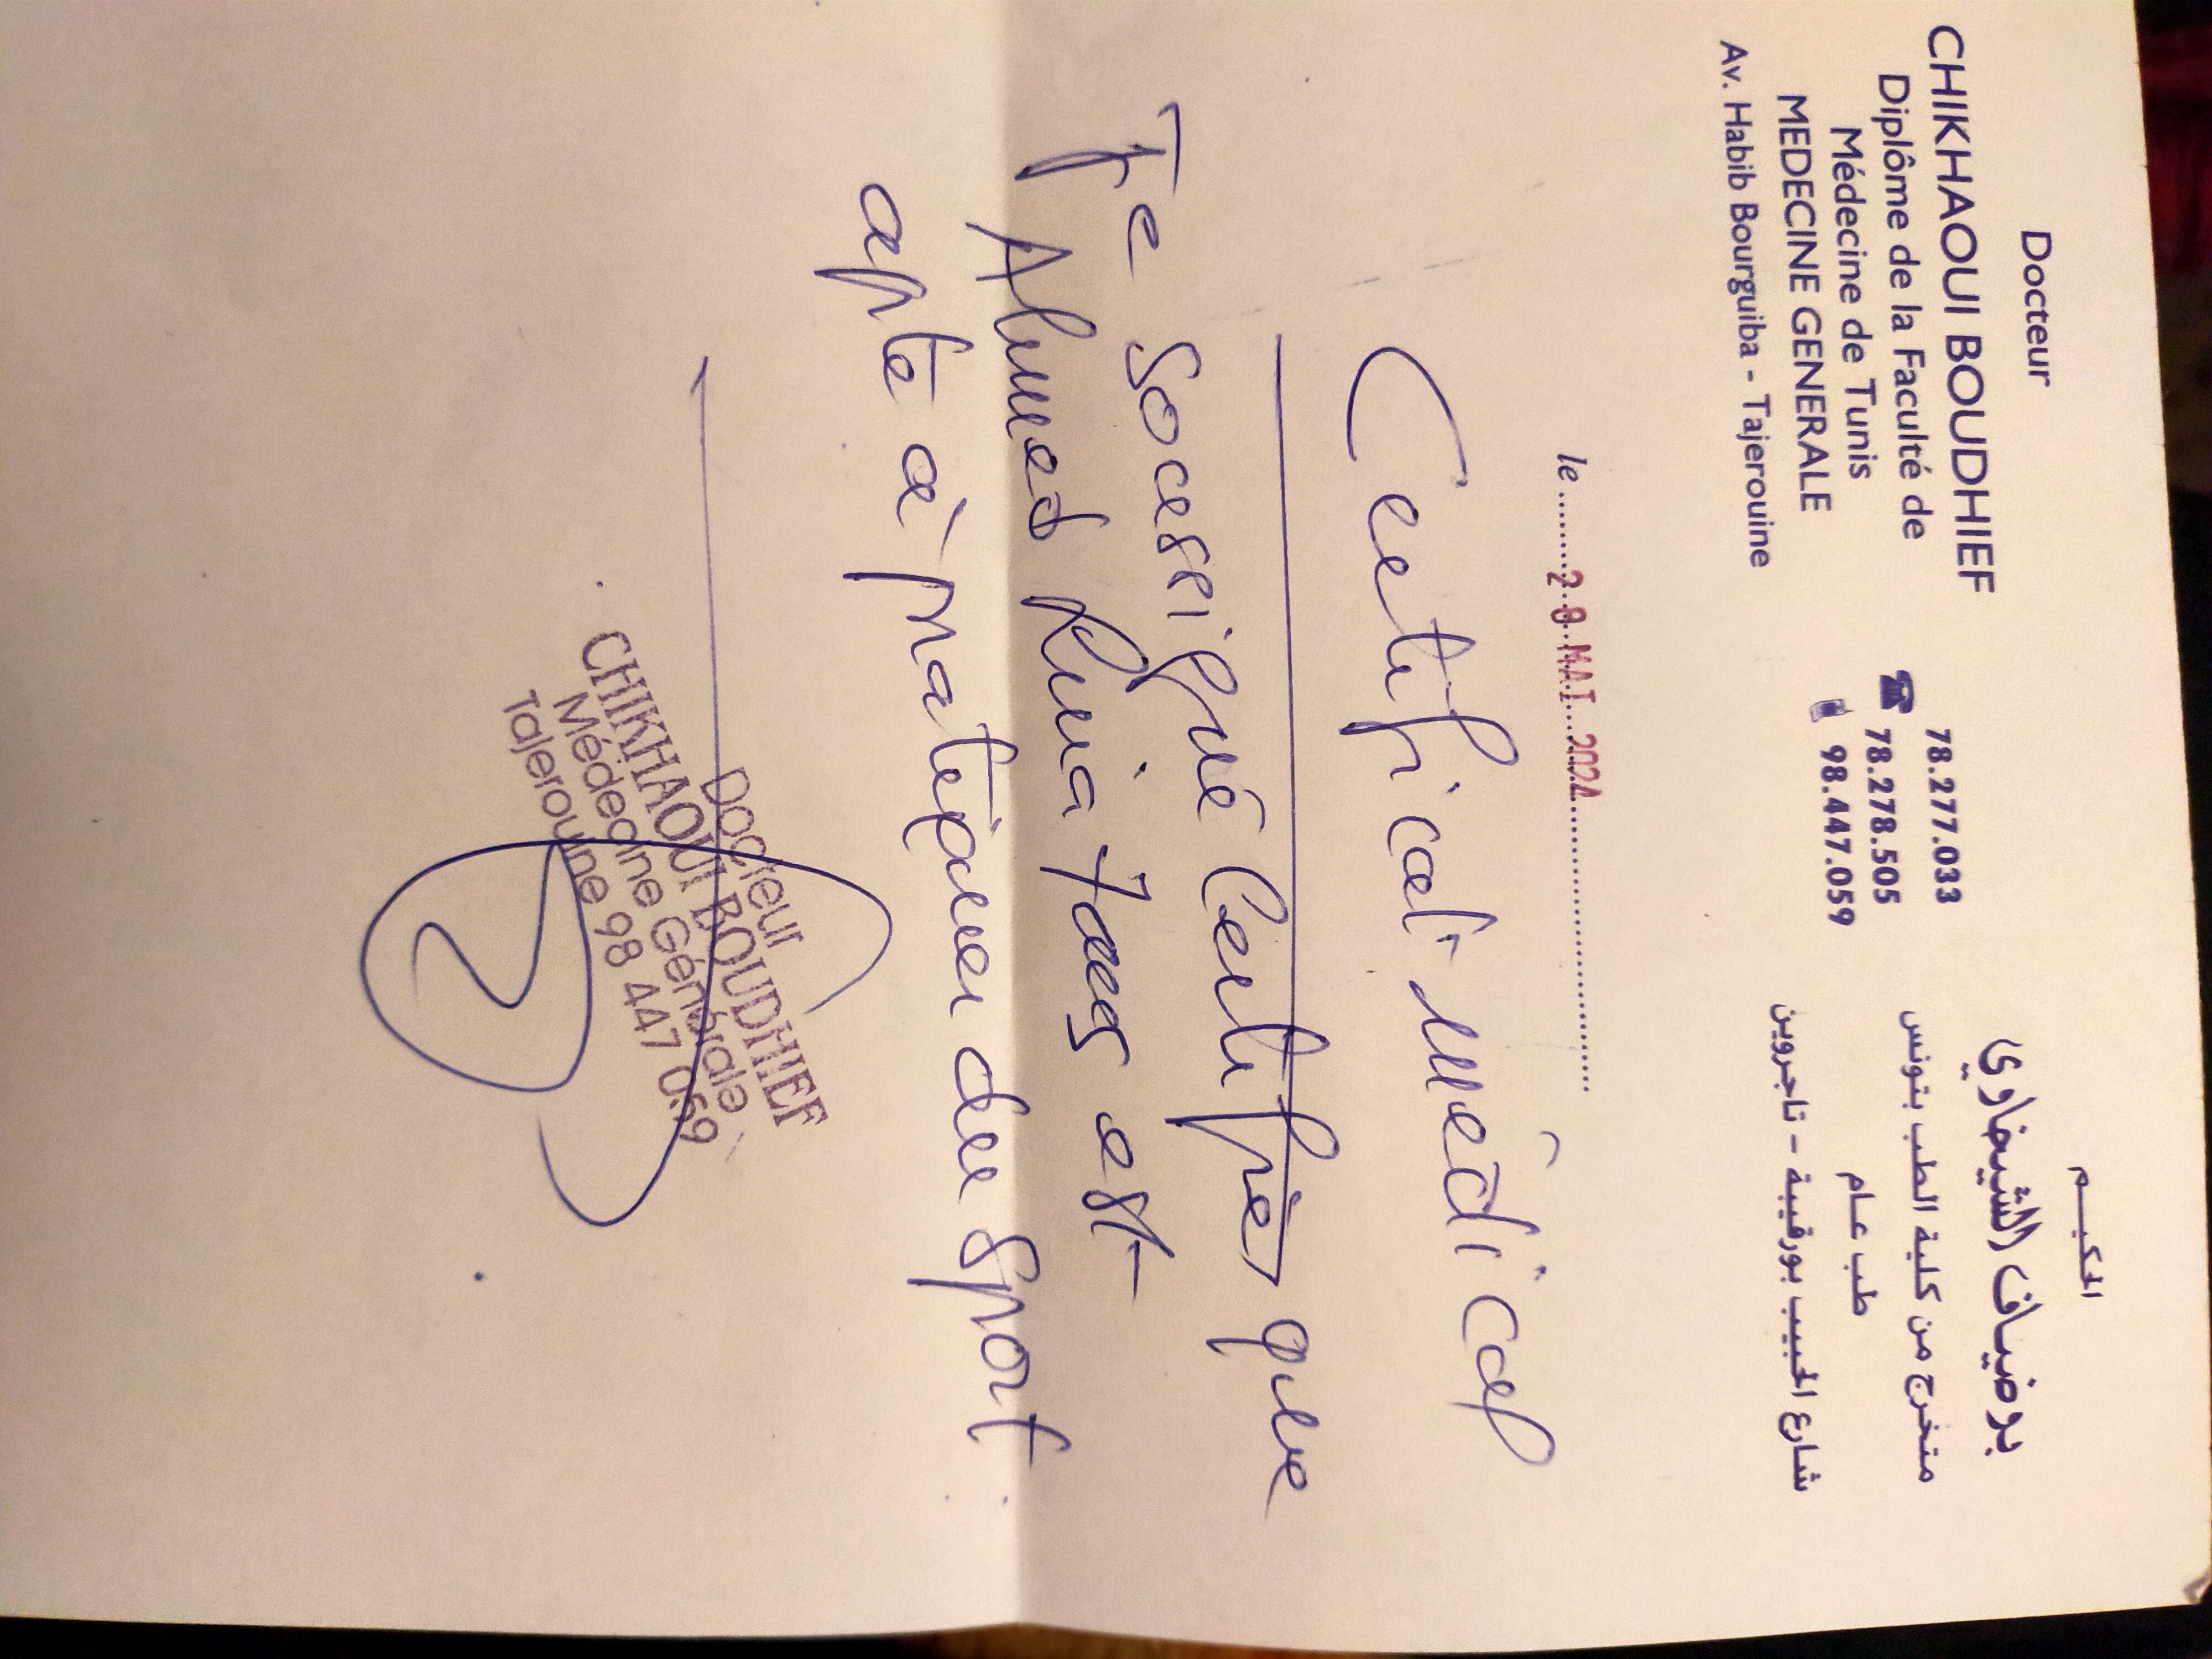 Docteur
CHIKHAOUI BOUDHIEF
Diplôme de la Faculté de
Médecine de Tunis
MEDECINE GENERALE
Av. Habib Bourguiba - Tajerouine
78.277.033
78.278.505
98.447.059
الحكيـــم
بوضياف الشيخاوي
متخرج من كلية الطب بتونس
طب عـام
شارع الحبيب بورقيبة - تاجروين
le ........28 MAI 2024........
Certificat médical
Je soussigné Certifie que
Ahmed est
apte à pratiquer du sport
Docteur
CHIKHAOUI BOUDHIEF
Médecine Générale
Tajerouine 98 447 059